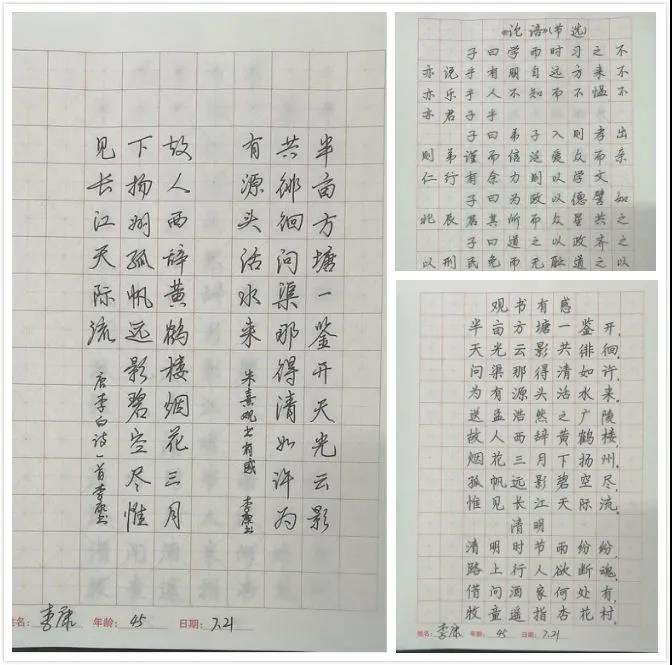 半亩方塘一鉴开天光云影
共徘徊问渠那得清如许为
有源头活水来 朱熹观书有感 李康书
故人西辞黄鹤楼烟花三月
下扬州孤帆远影碧空尽惟
见长江天际流 唐李白诗一首李康书
姓名：李康 年龄：45 日期：7.21
《论语》(节选)
子曰学而时习之不
亦说乎有朋自远方来不
亦乐乎人不知而不愠不
亦君子乎
子曰弟子入则孝出
则弟谨而信泛爱众而亲
仁行有余力则以学文
子曰为政以德譬如
北辰居其所而众星共之
子曰道之以政齐之
以刑民免而无耻道之以
观书有感
半亩方塘一鉴开，
天光云影共徘徊。
问渠那得清如许，
为有源头活水来。
送孟浩然之广陵
故人西辞黄鹤楼，
烟花三月下扬州。
孤帆远影碧空尽，
惟见长江天际流。
清明
清明时节雨纷纷，
路上行人欲断魂。
借问酒家何处有，
牧童遥指杏花村。
姓名：李康 年龄：45 日期：7.21